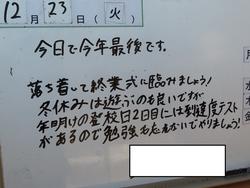 12月23日(火)
今日で今年最後です。
落ち着いて終業式に臨みましょう!
冬休みは遊ぶのも良いですが
年明けの登校日2日目には到達度テスト
があるので勉強も忘れないでやりましょう!